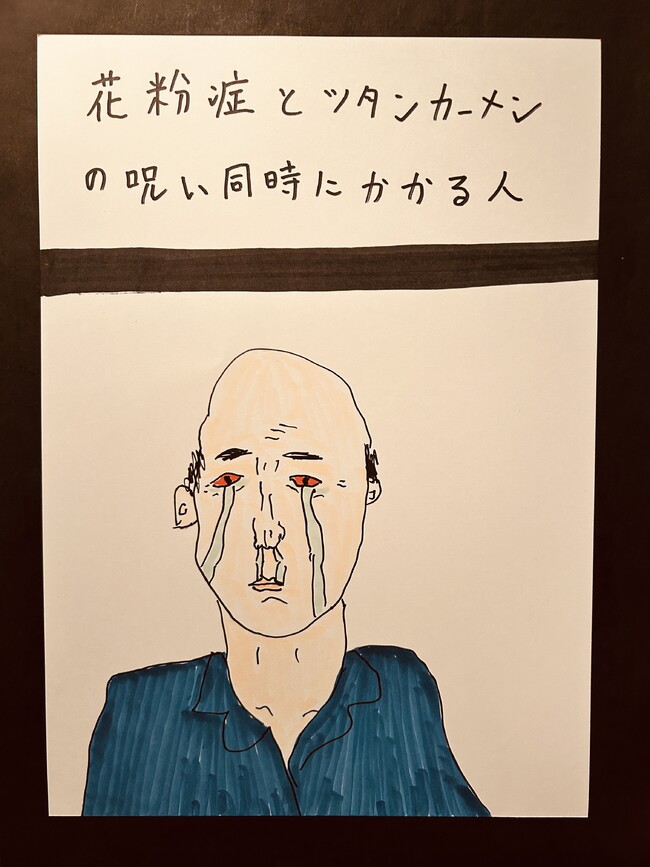 花粉症とツタンカーメン
の呪い同時にかかる人